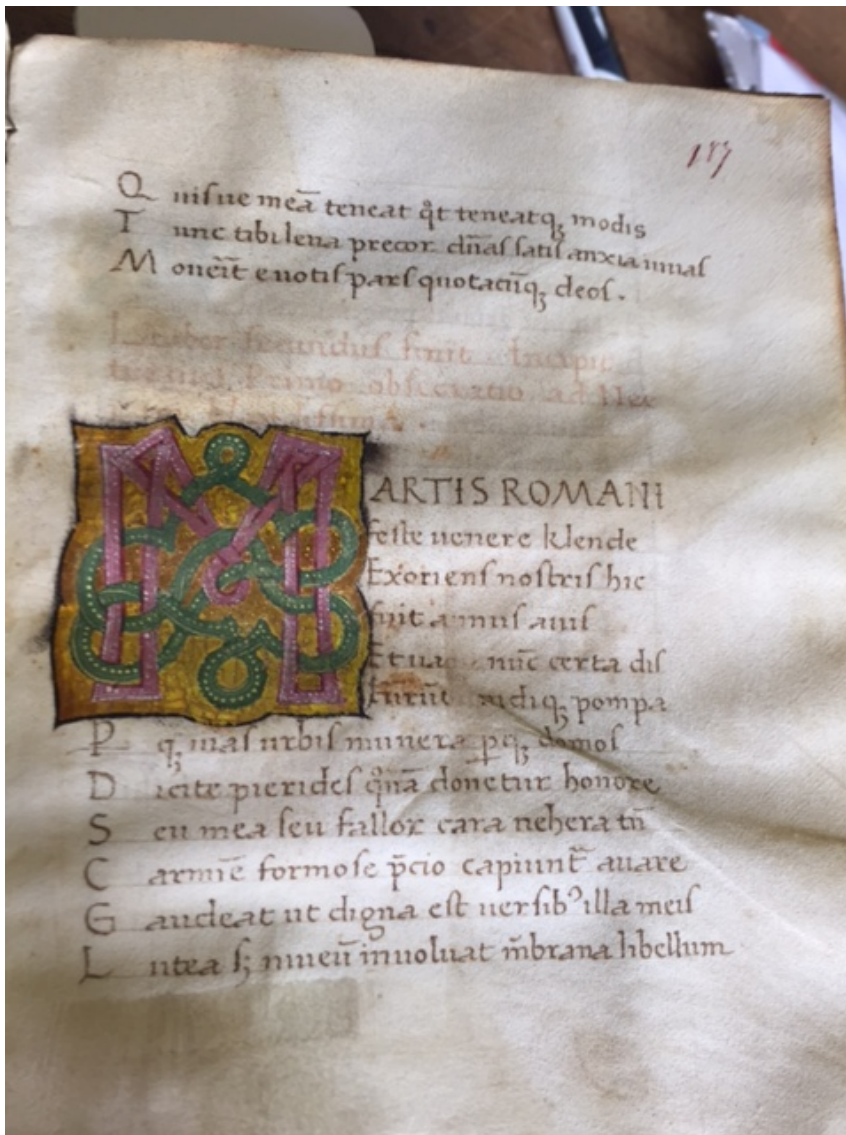 187
Q uisue meā teneat q̊t teneatqꝫ modis
T unc tibi lena precor dn̄as satis anxia
M oneīt e uotis pars quotacūqꝫ deos.
Liber secundus finit Incipit
Primo obsecratio ad Nee
MARTIS ROMANI
feste uenere klende
Exoriens nostris hic
fuit annus auis
Et nūc certa dis
pompa
P qꝫ uias urbis munera ꝑqꝫ domos
D icite pierides q̊nā donetur honore
S eu mea seu fallor cara nehera tn̄
C armīe formose p̄cio capiunt̄ auare
G audeat ut digna est uersibꝰ illa meis
L utea sꝫ niueū inuoluat m̄brana libellum